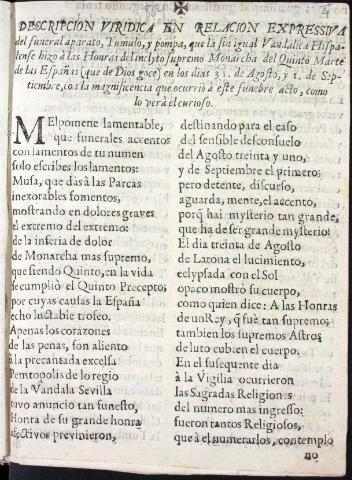 DESCRIPCION VIRIDICA EN RELACION EXPRESSIVA
del funeral aparato, Tumulo, y pompa, que la sin igual Vandalica Hispa-
lense hizo à las Honras del inclyto supremo Monarcha del Quinto Marte
de las Españas (que de Dios goce) en los dias 31. de Agosto, y 1. de Sep-
tiembre, con la magnificencia que ocurriò a este funebre acto, como
lo verà el curioso.
MElpomene lamentable,
que funerales accentos
con lamentos de tu numen
solo escribes los lamentos:
Musa, que dàs à las Parcas
inexorables fomentos,
mostrando en dolores graves
el extremo del extremo:
de la inferia de dolor
de Monarcha mas supremo,
que siendo Quinto, en la vida
se cumpliò el Quinto Precepto;
por cuyas causas la España
echò luctable trofeo.
Apenas los corazones
de las penas, son aliento
à la precantada excelsa
Pemtopolis de lo regio
de la Vandala Sevilla
tuvo anuncio tan funesto,
Honra de su grande honra
afectivos previnieron,
destinando para el caso
del sensible desconsuelo
del Agosto treinta y uno,
y de Septiembre el primero;
pero detente, discurso,
aguarda, mente, el accento,
porq̃ hai mysterio tan grande,
que ha de ser grande mysterio:
El dia treinta de Agosto
de Latona el lucimiento,
eclypsada con el Sol
opaco mostrò su cuerpo,
como quien dice: A las Honras
de un Rey, q̃ fuè tan supremo;
tambien los supremos Astros
de luto cubren el cuerpo.
En el subsequente dia
à la Vigilia ocurrieron
las Sagradas Religiones
del numero mas ingresso:
fueron tantos Religiosos,
que à el numerarlos, contemplo
no